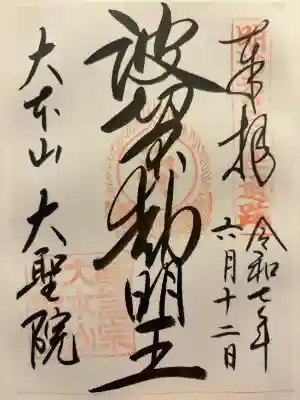 奉拝
令和七年
六月十二日
波切不動明王
大本山 大聖院